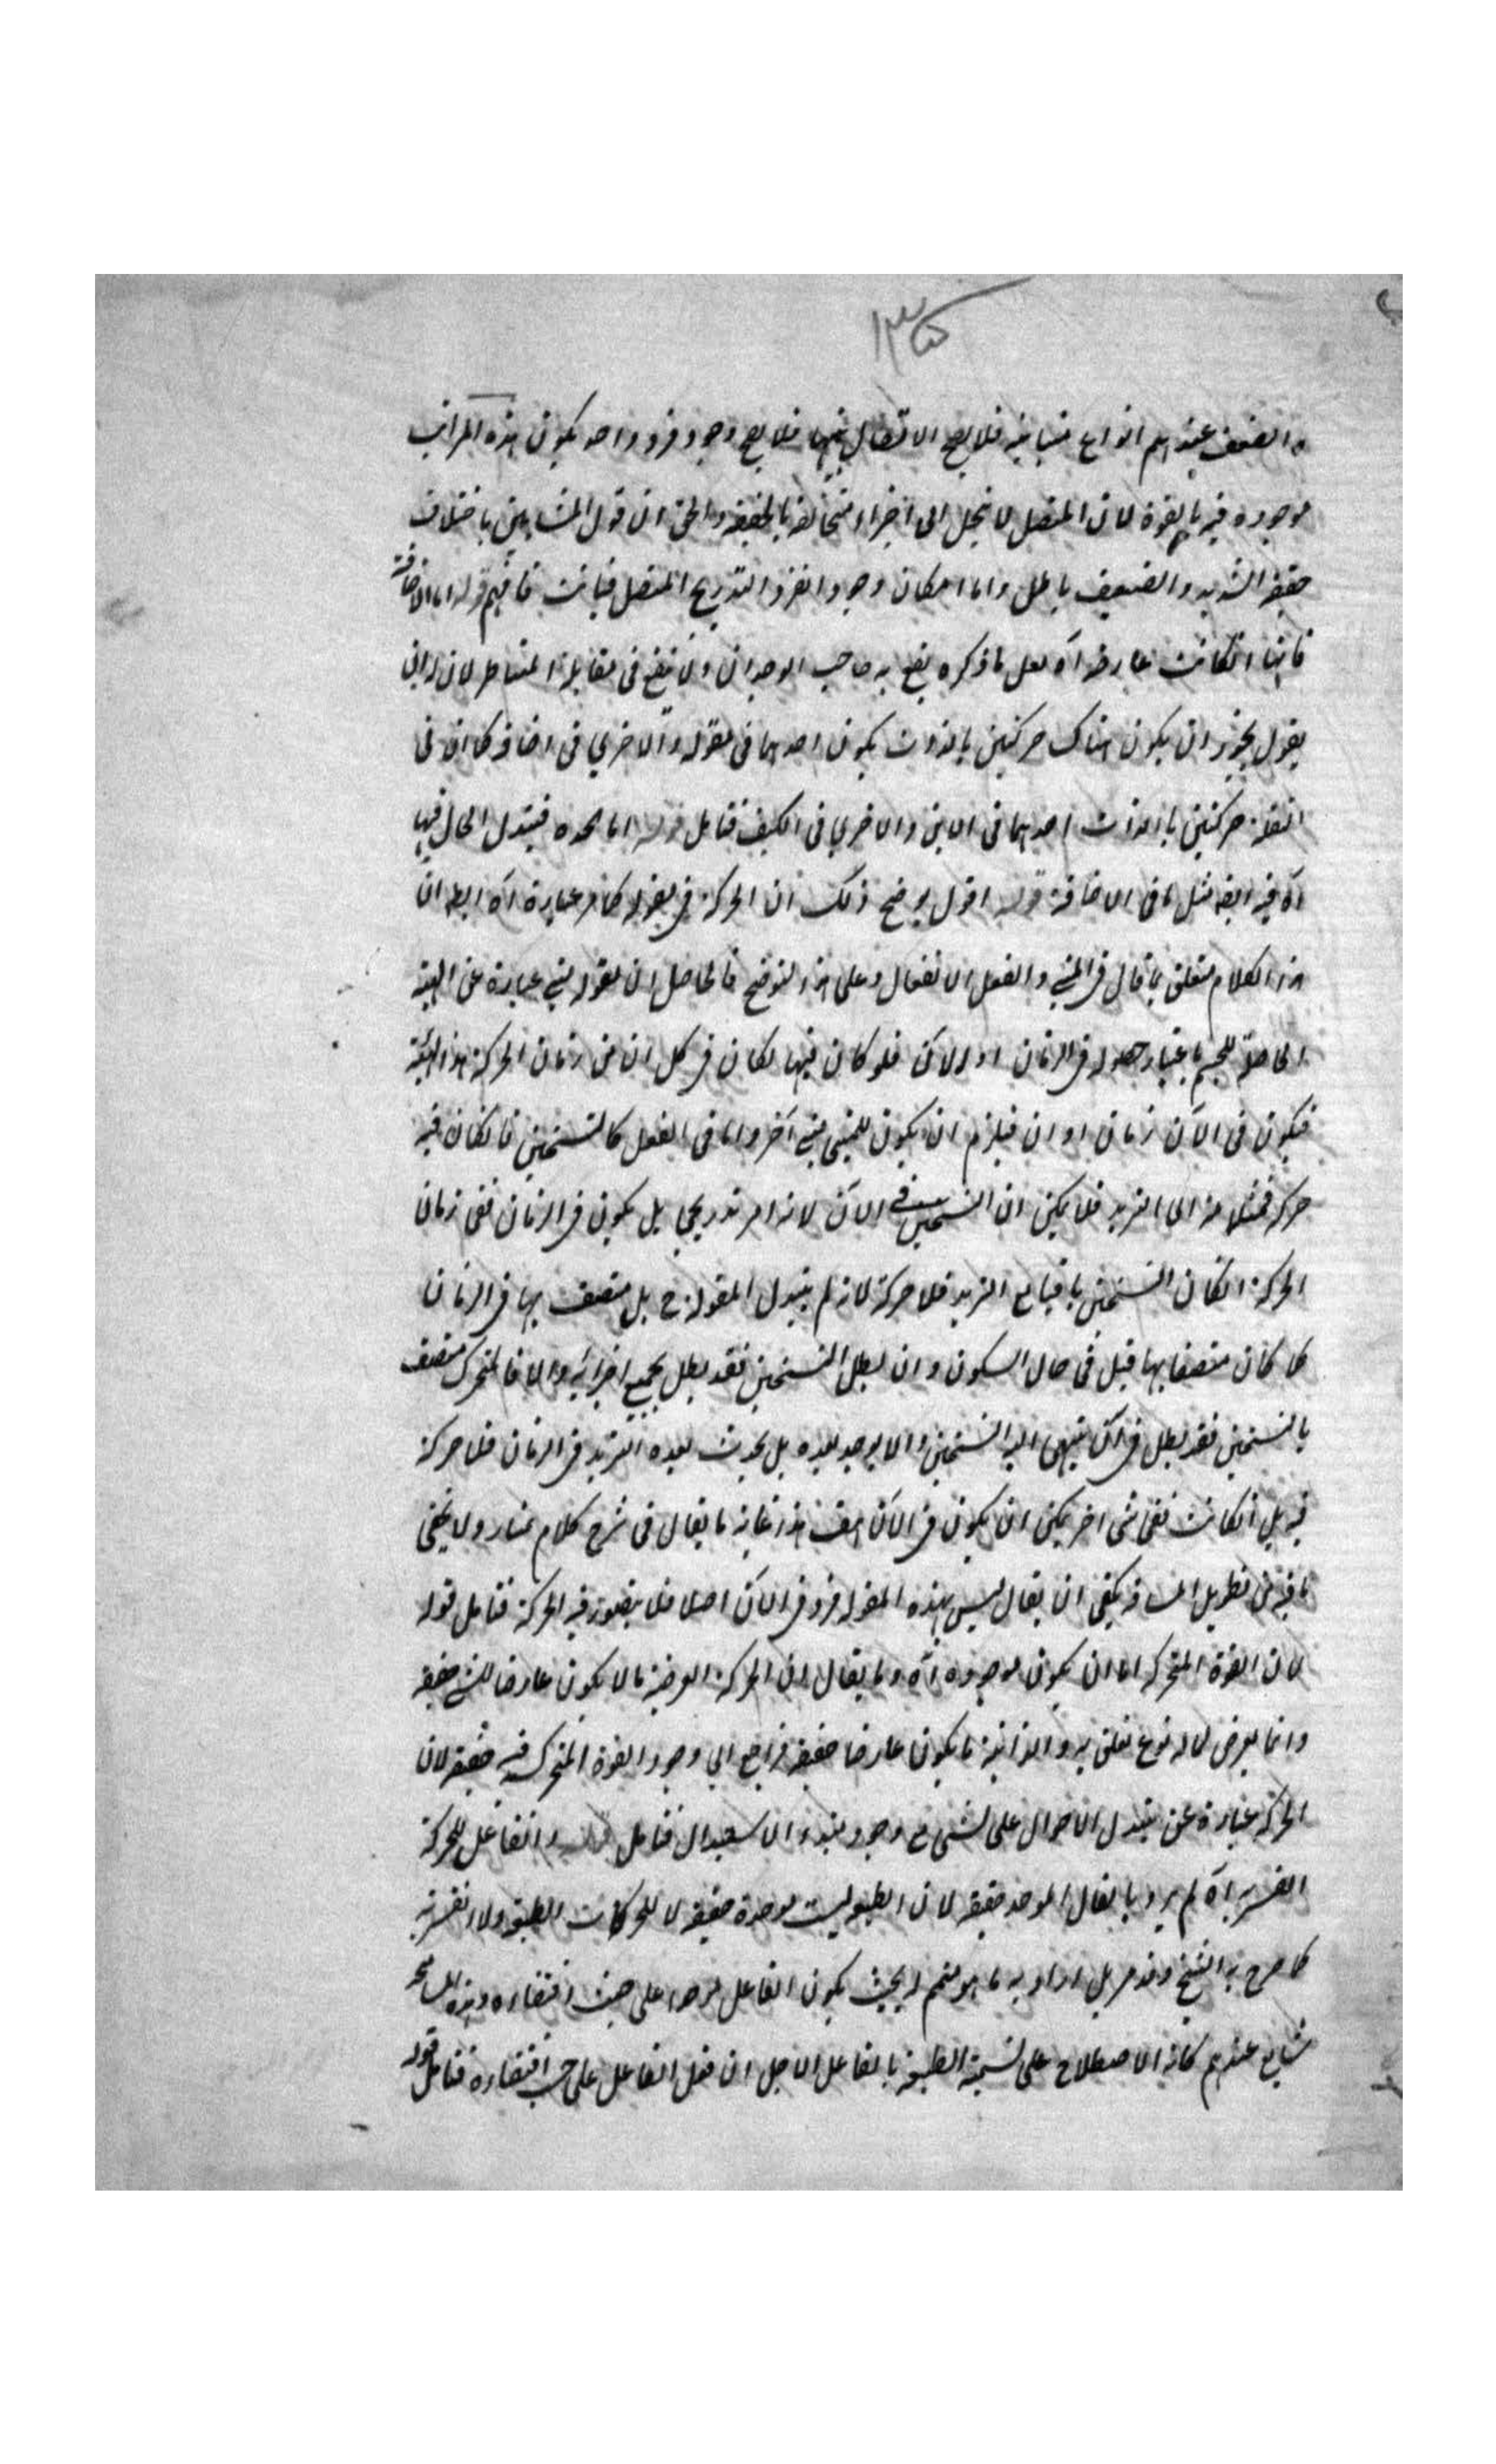 و الضعف عندهم انواع متباينة فلا يصح الاتصال بينها فلا يصح وجود فرد واحد يكون هذه المراتب
موجودة فيه بالقوة لان المتصل لا ينحل الى اجزاء متخالفة بالحقيقة والحق ان قول المشايين باختلاف
حقيقة الشديد والضعيف باطل واما امكان وجود الفرد التدريجي المتصل فثابت فافهم قوله اما الاضافة
فانها انكانت عارضة آه لعل ما ذكره يقنع به صاحب الوجدان ولا ينفع في مقابلة المناظر لان له ان
يقول يجوز ان يكون هناك حركتين بالذات يكون احدهما في مقولة والاخرى في اضافة كما ان في
النقلة حركتين بالذات احدهما في الاين والاخرى في الكيف فتامل قوله اما الجدة فتبدل الحال فيها
آه فيه ايضا مثل ما في الاضافة قوله اقول يوضح ذلك ان الحركة في مقولة كما مر عبارة آه الظ ان
هذا الكلام متعلق بما قال في المتى والفعل الانفعال وعلى هذا التوضيح فالحاصل ان مقولة متى عبارة عن الهيئة
الحاصلة للجسم باعتبار حصوله في الزمان او الآن فلو كان فيها لكان في كل ان من زمان الحركة هذا الهيئة
فيكون في الآن زمان او ان فيلزم ان يكون للمتى متى آخر واما في الفعل كالتسخين فانكان فيه
حركة فمثلا منه الى التبريد فلا يمكن ان التسخين في الآن لانه امر تدريجي بل يكون في الزمان ففي زمان
الحركة انكان التسخين باقيا مع التبريد فلا حركة لانه لم يتبدل المقولة ح بل متصف بها في الزمان
كما كان متصفا بها قبل في حال السكون وان بطل التسخين فقد بطل بجميع اجزائه والا فالمتحرك متصف
بالتسخين فقد بطل في آن ينتهى اليه التسخين والا يوجد بعده بل يحدث بعده التبريد في الزمان فلا حركة
فيه بل انكانت ففي شى اخر يمكن ان يكون في الآن هف هذا غاية ما يقال في شرح كلام بهمنيار ولا يخفى
ما فيه من تطويل المسافة يكفى ان يقال ليس لهذه المقولة فرد في الآن اصلا فلا يتصور فيه الحركة فتامل قوله
لان القوة المحركة اما ان يكون موجودة آه وما يقال ان الحركة العرضية ما لا يكون عارضا للشى حقيقة
وانما يعرض لما له نوع تعلق به والذاتية ما يكون عارضا حقيقة فراجع الى وجود القوة المتحركة فيه حقيقة لان
الحركة عبارة عن تبدل الاحوال على الشى مع وجود مبدء الاستبدال فتامل قوله والفاعل للحركة
القسرية آه لم يرد بالفاعل الموجد حقيقة لان الطبيعة ليست موجدة حقيقة لا للحركات الطبيعية ولا القسرية
كما صرح به الشيخ وقد مر بل اراد به ما هو متمم له بحيث يكون الفاعل موجدا على حسب اقتضاءه وهذه المسامحة
شايع عندهم كانه الاصطلاح على تسمية الطبيعة بالفاعل لاجل ان فعل الفاعل على حسب اقتضاءه فتامل قوله